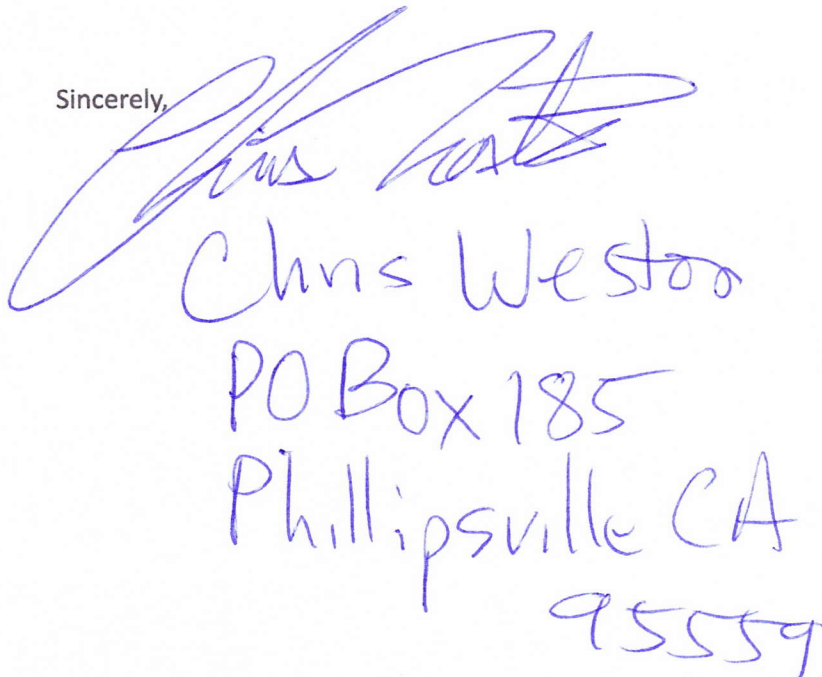 Sincerely,
Chris Weston
PO Box 185
Phillipsville CA
95559